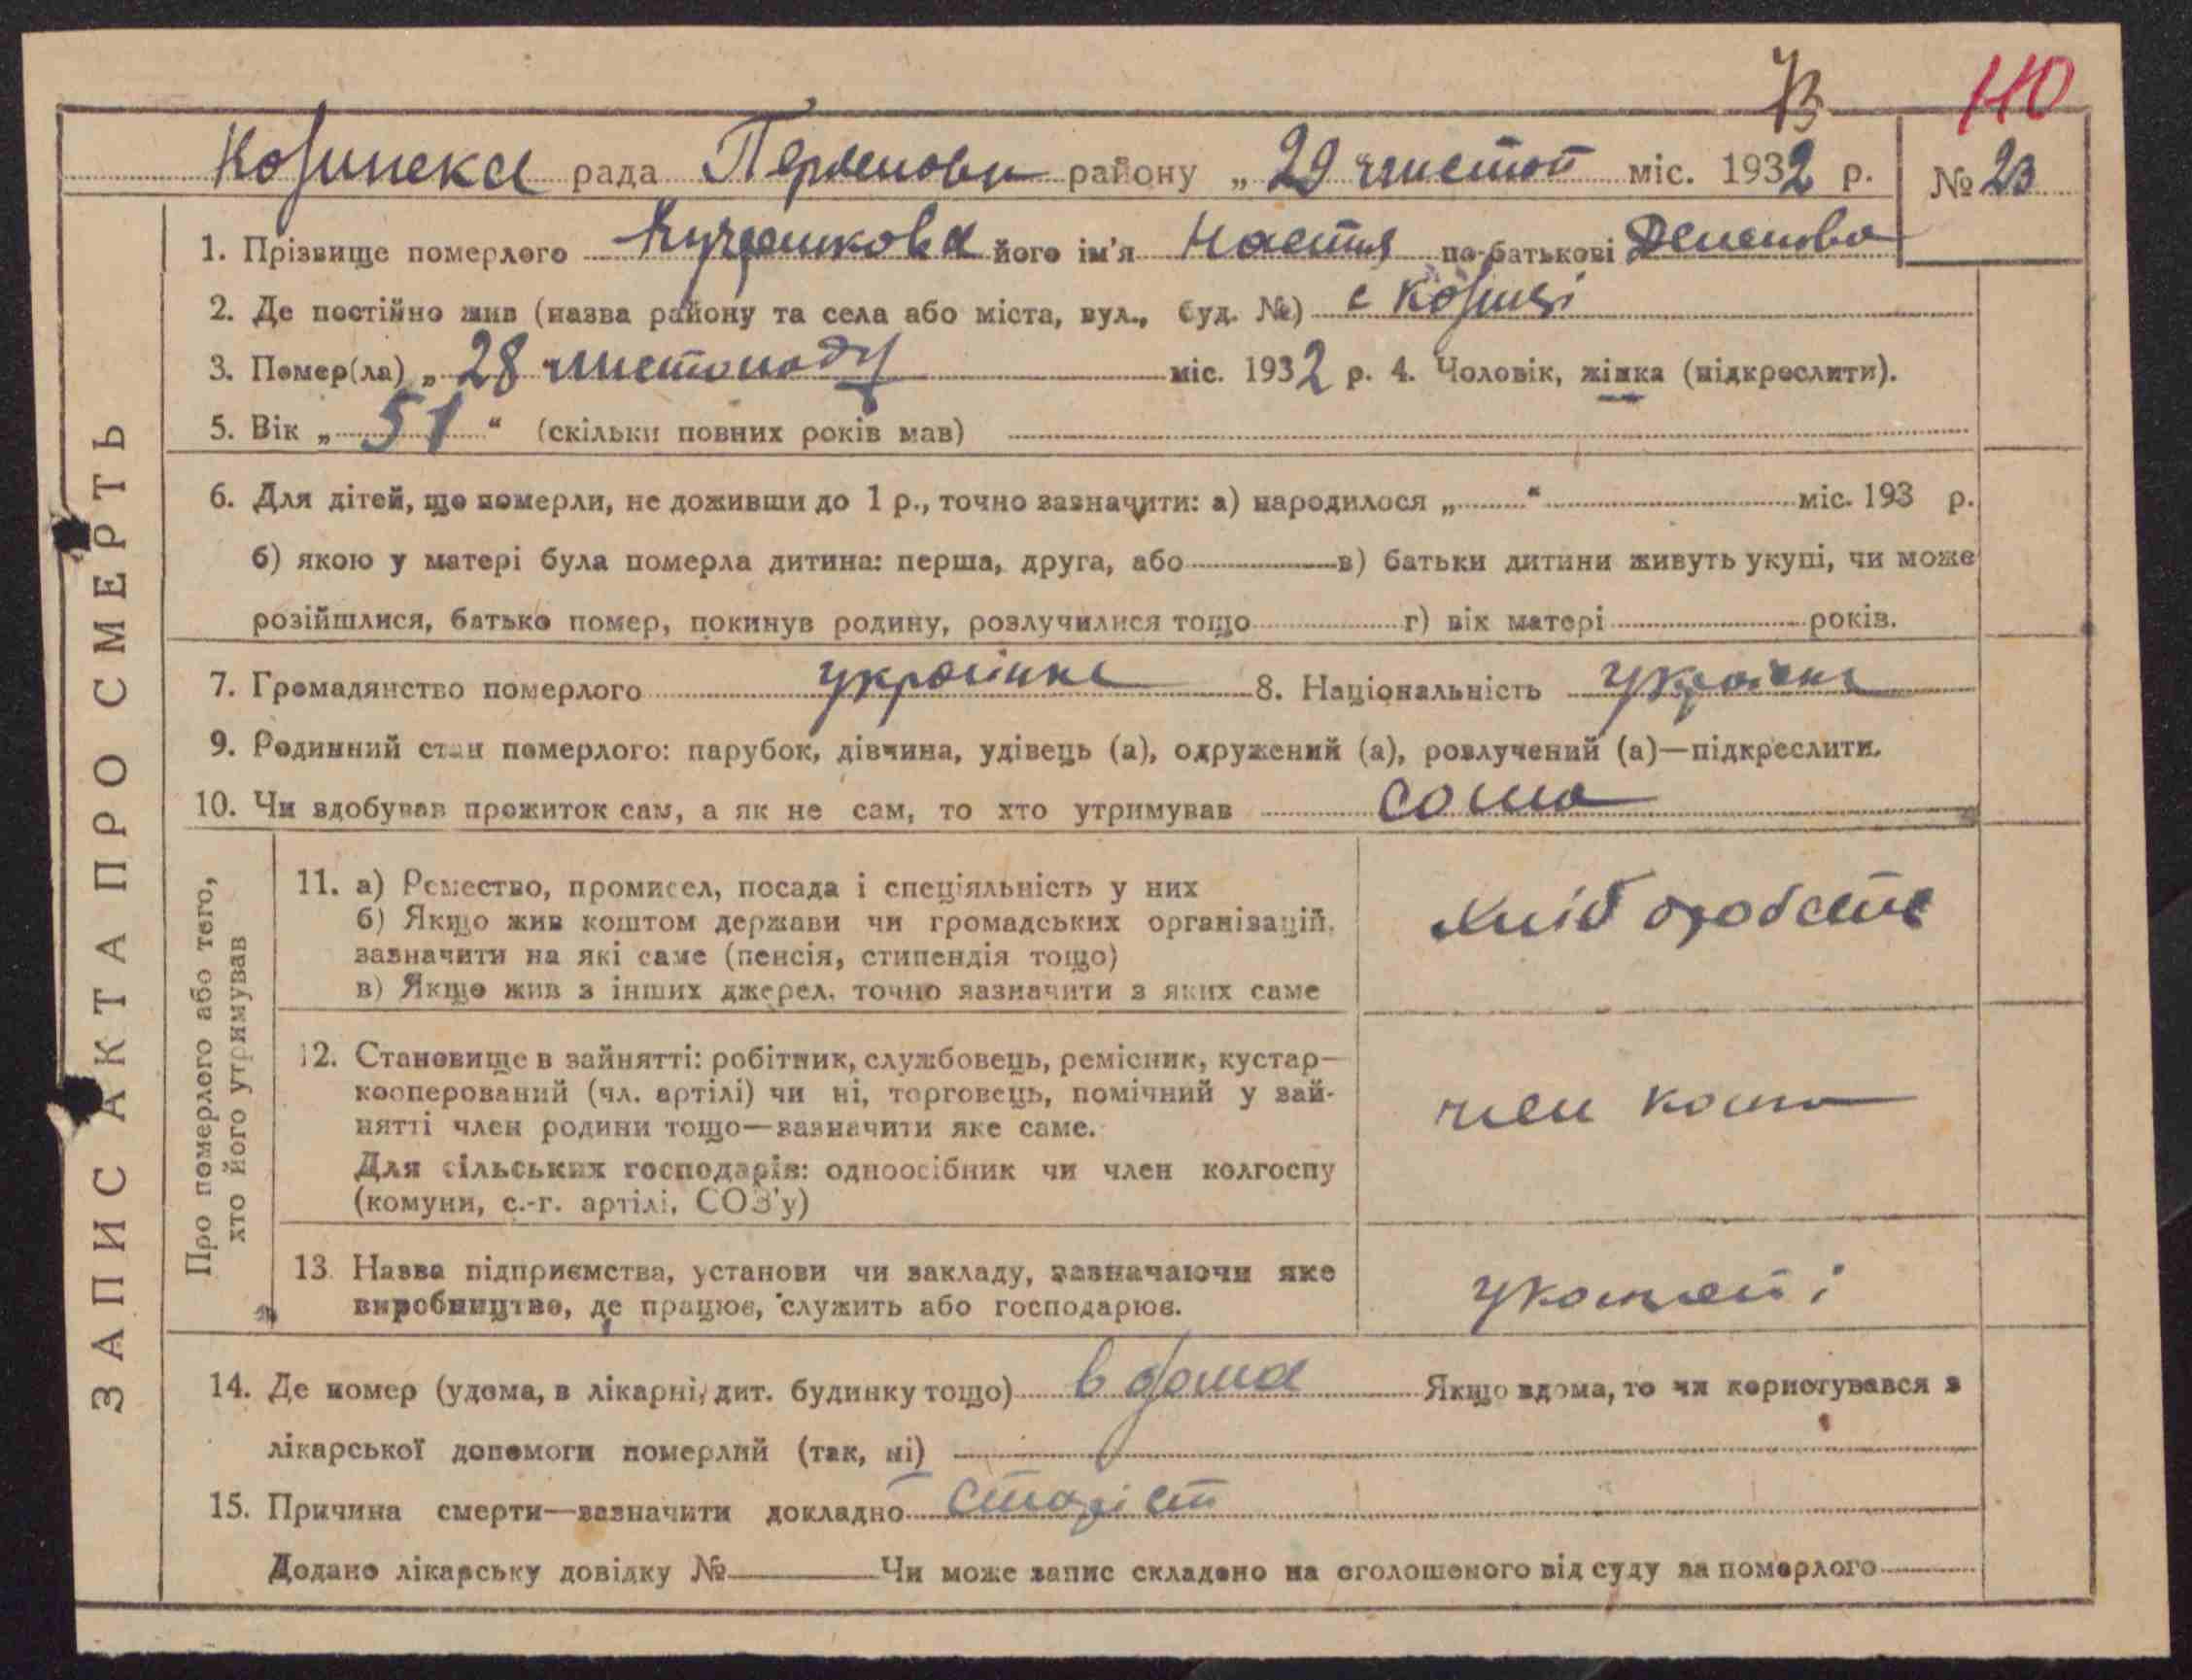 73 110
рада району „ 29 листоп міс. 1932 р. № 23
1. Прізвище померлого його ім'я Настя по-батькові
2. Де постійно жив (назва району та села або міста, вул., буд. №) с
3. Помер(ла) „ 28 листопаду міс. 1932 р. 4. Чоловік, жінка (підкреслити).
5. Вік „ 51 “ (скільки повних років мав)
6. Для дітей, що померли, не доживши до 1 р., точно зазначити: а) народилося „ “ міс. 193 р.
б) якою у матері була померла дитина: перша, друга, або в) батьки дитини живуть укупі, чи може
розійшлися, батько помер, покинув родину, розлучилися тощо г) вік матері років.
7. Громадянство померлого українка 8. Національність українка
9. Родинний стан померлого: парубок, дівчина, удівець (а), одружений (а), розлучений (а)—підкреслити.
10. Чи здобував прожиток сам, а як не сам, то хто утримував сама
ЗАПИС АКТА ПРО СМЕРТЬ
Про померлого або того,
хто його утримував
11. а) Ремество, промисел, посада і спеціяльність у них
б) Якщо жив коштом держави чи громадських організацій,
зазначити на які саме (пенсія, стипендія тощо)
в) Якщо жив з інших джерел, точно зазначити з яких саме
12. Становище в зайнятті: робітник, службовець, ремісник, кустар—
кооперований (чл. артілі) чи ні, торговець, помічний у зай-
нятті член родини тощо—зазначити яке саме.
Для сільських господарів: одноосібник чи член колгоспу
(комуни, с.-г. артілі, СОЗ'у)
член
13. Назва підприємства, установи чи закладу, зазначаючи яке
виробництво, де працює, служить або господарює.
14. Де помер (удома, в лікарні, дит. будинку тощо) в дома Якщо вдома, то чи користувався з
лікарської допомоги померлий (так, ні)
15. Причина смерти—зазначити докладно старіст
Додано лікарську довідку № Чи може запис складено на оголошеного від суду за померлого